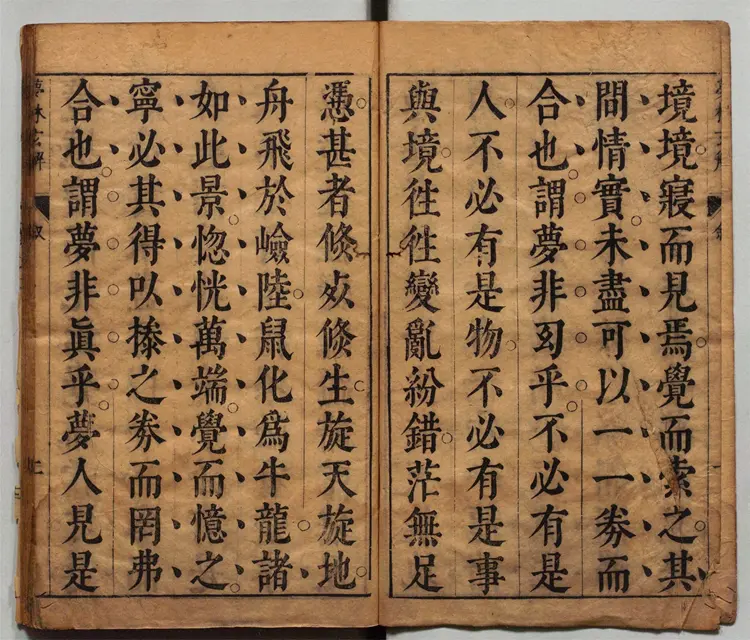 境境寢而見焉覺而索之其
間情實未盡可以一一券而
合也謂夢非幻乎不必有是
人不必有是物不必有是事
與境徃徃變亂紛錯茫無足
憑甚者倐死倐生旋天旋地
舟飛於嶮陸鼠化爲牛龍諸
如此景惚恍萬端覺而憶之
寧必其得以搽之券而罔弗
合也謂夢非眞乎夢人見是
夢林玄解
敘